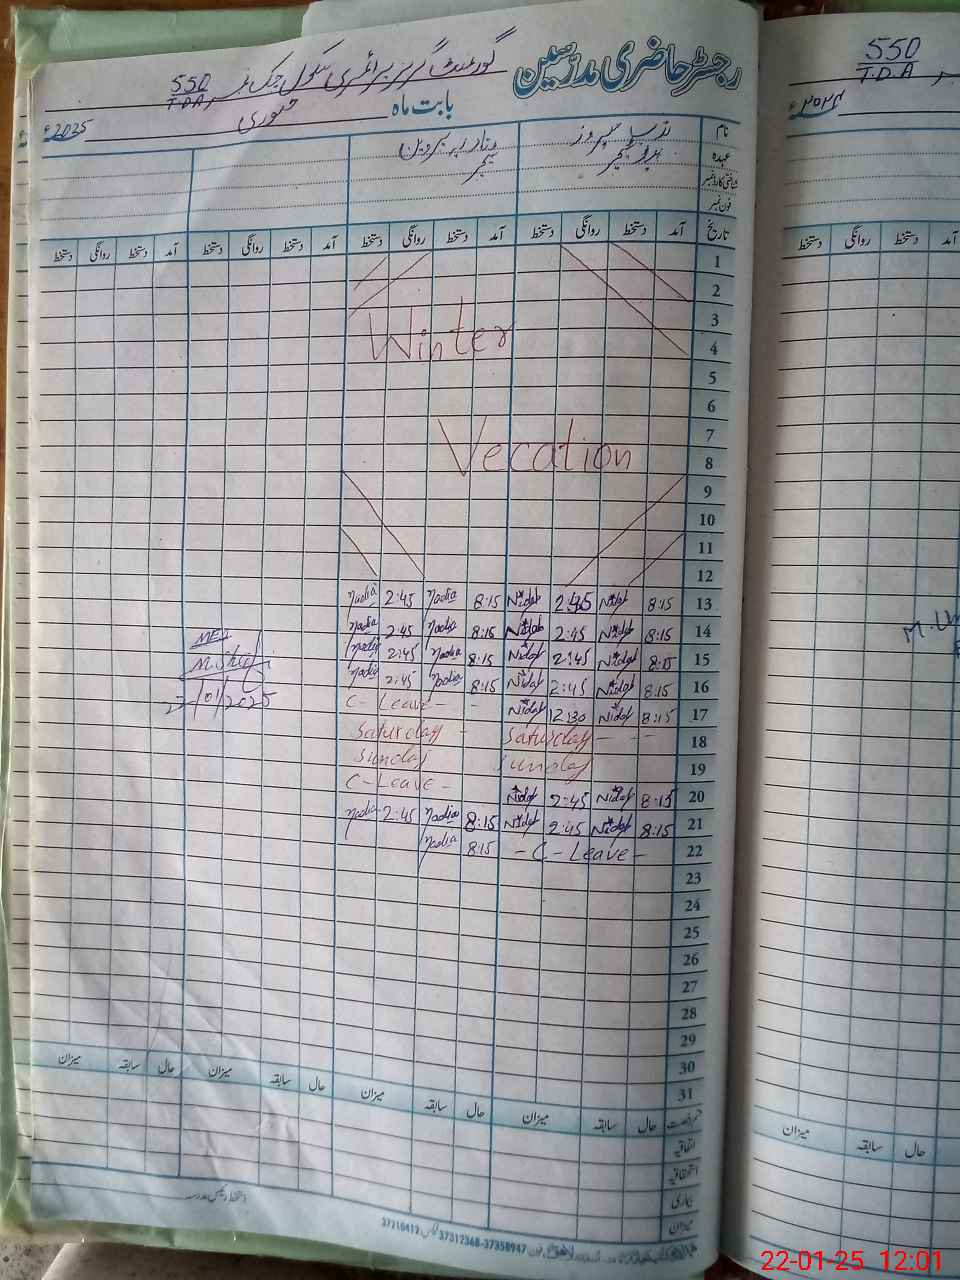 رجسٹر حاضری مدرسین
گورنمنٹ گرلز پرائمری سکول چک نمبر 550/T.D.A
بابت ماہ جنوری 2025ء
نام
عہدہ ٹیچر
شناختی کارڈ نمبر
فون نمبر
تاریخ آمد دستخط روانگی دستخط آمد دستخط روانگی دستخط آمد دستخط روانگی دستخط آمد دستخط روانگی دستخط
1
2
3
Winter
4
5
6
7
Vecation
8
9
10
11
12
13 8:15 Nidaf 2:45 Nidaf 8:15 Nadia 2:45 Nadia
14 8:15 Nidaf 2:45 Nidaf 8:15 Nadia 2:45 Nadia
15 8:15 Nidaf 2:45 Nidaf 8:15 Nadia 2:45 Nadia
16 8:15 Nidaf 2:45 Nidaf 8:15 Nadia 2:45 Nadia
17 8:15 Nidaf 12:30 Nidaf C-Leave-
18 Saturday Saturday
19 Sunday Sunday
20 8:15 Nidaf 2:45 Nidaf C-Leave-
21 8:15 Nidaf 2:45 Nidaf 8:15 Nadia 2:45 Nadia
22 -C-Leave- 8:15 Nadia
23
24
25
26
27
28
29
30
31
M.Shafi
/01/2025
حال سابقہ میزان حال سابقہ میزان حال سابقہ میزان حال سابقہ میزان
اتفاقیہ
استحقاقیہ
بیماری
میزان
37312368-37358947
37210412
550
T.D.A
دستخط روانگی دستخط آمد
میزان سابقہ حال
22-01-25 12:01